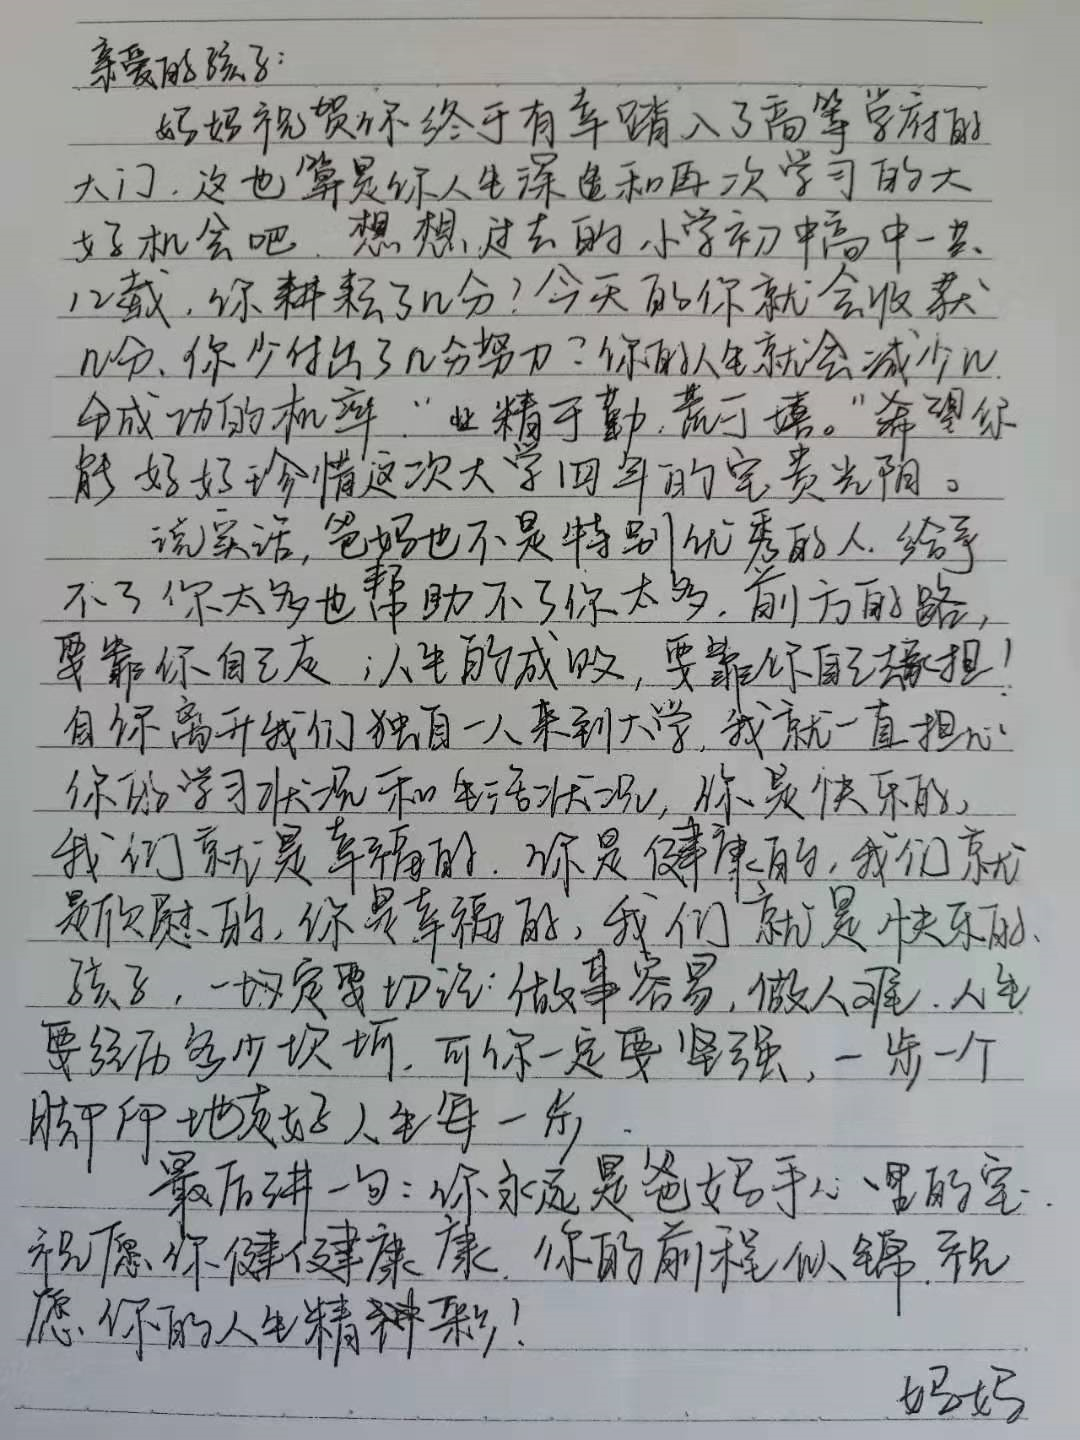 亲爱的孩子:
妈妈祝贺你终于有幸踏入了高等学府的
大门.这也算是你人生深造和再次学习的大
好机会吧.想想,过去的小学初中高中一共
12载,你耕耘了几分?今天的你就会收获
几分、你少付出了几分努力?你的人生就会减少几
分成功的机率."业精于勤.荒于嬉。"希望你
能好好珍惜这次大学四年的宝贵光阴。
说实话,爸妈也不是特别优秀的人.给予
不了你太多也帮助不了你太多.前方的路,
要靠你自己走;人生的成败,要靠你自己承担!
自你离开我们独自一人来到大学,我就一直担心
你的学习状况和生活状况,你是快乐的,
我们就是幸福的.你是健康的,我们就
是欣慰的,你是幸福的,我们就是快乐的、
孩子,一定要切记:做事容易,做人难.人生
要经历多少坎坷,可你一定要坚强,一步一个
脚印地走好人生每一步.
最后讲一句:你永远是爸妈手心里的宝.
祝愿你健健康康.你的前程似锦.祝
愿你的人生精彩!
妈妈